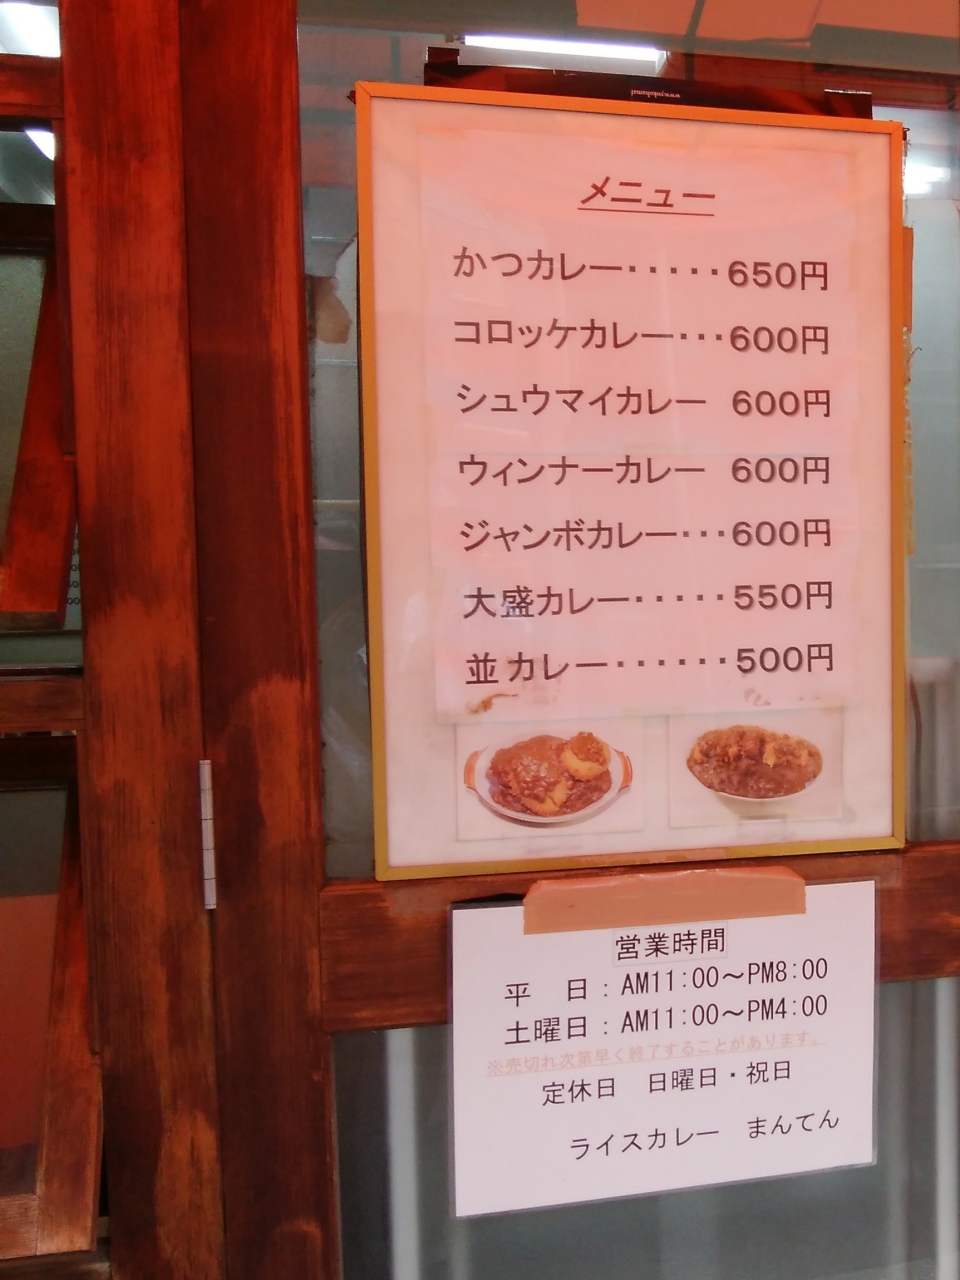 メニュー
かつカレー‥‥‥650円
コロッケカレー‥‥600円
シュウマイカレー 600円
ウィンナーカレー 600円
ジャンボカレー‥‥600円
大盛カレー‥‥‥550円
並カレー‥‥‥‥500円
営業時間
平 日:AM11:00～PM8:00
土曜日:AM11:00～PM4:00
※売切れ次第早く終了することがあります。
定休日 日曜日・祝日
ライスカレー まんてん